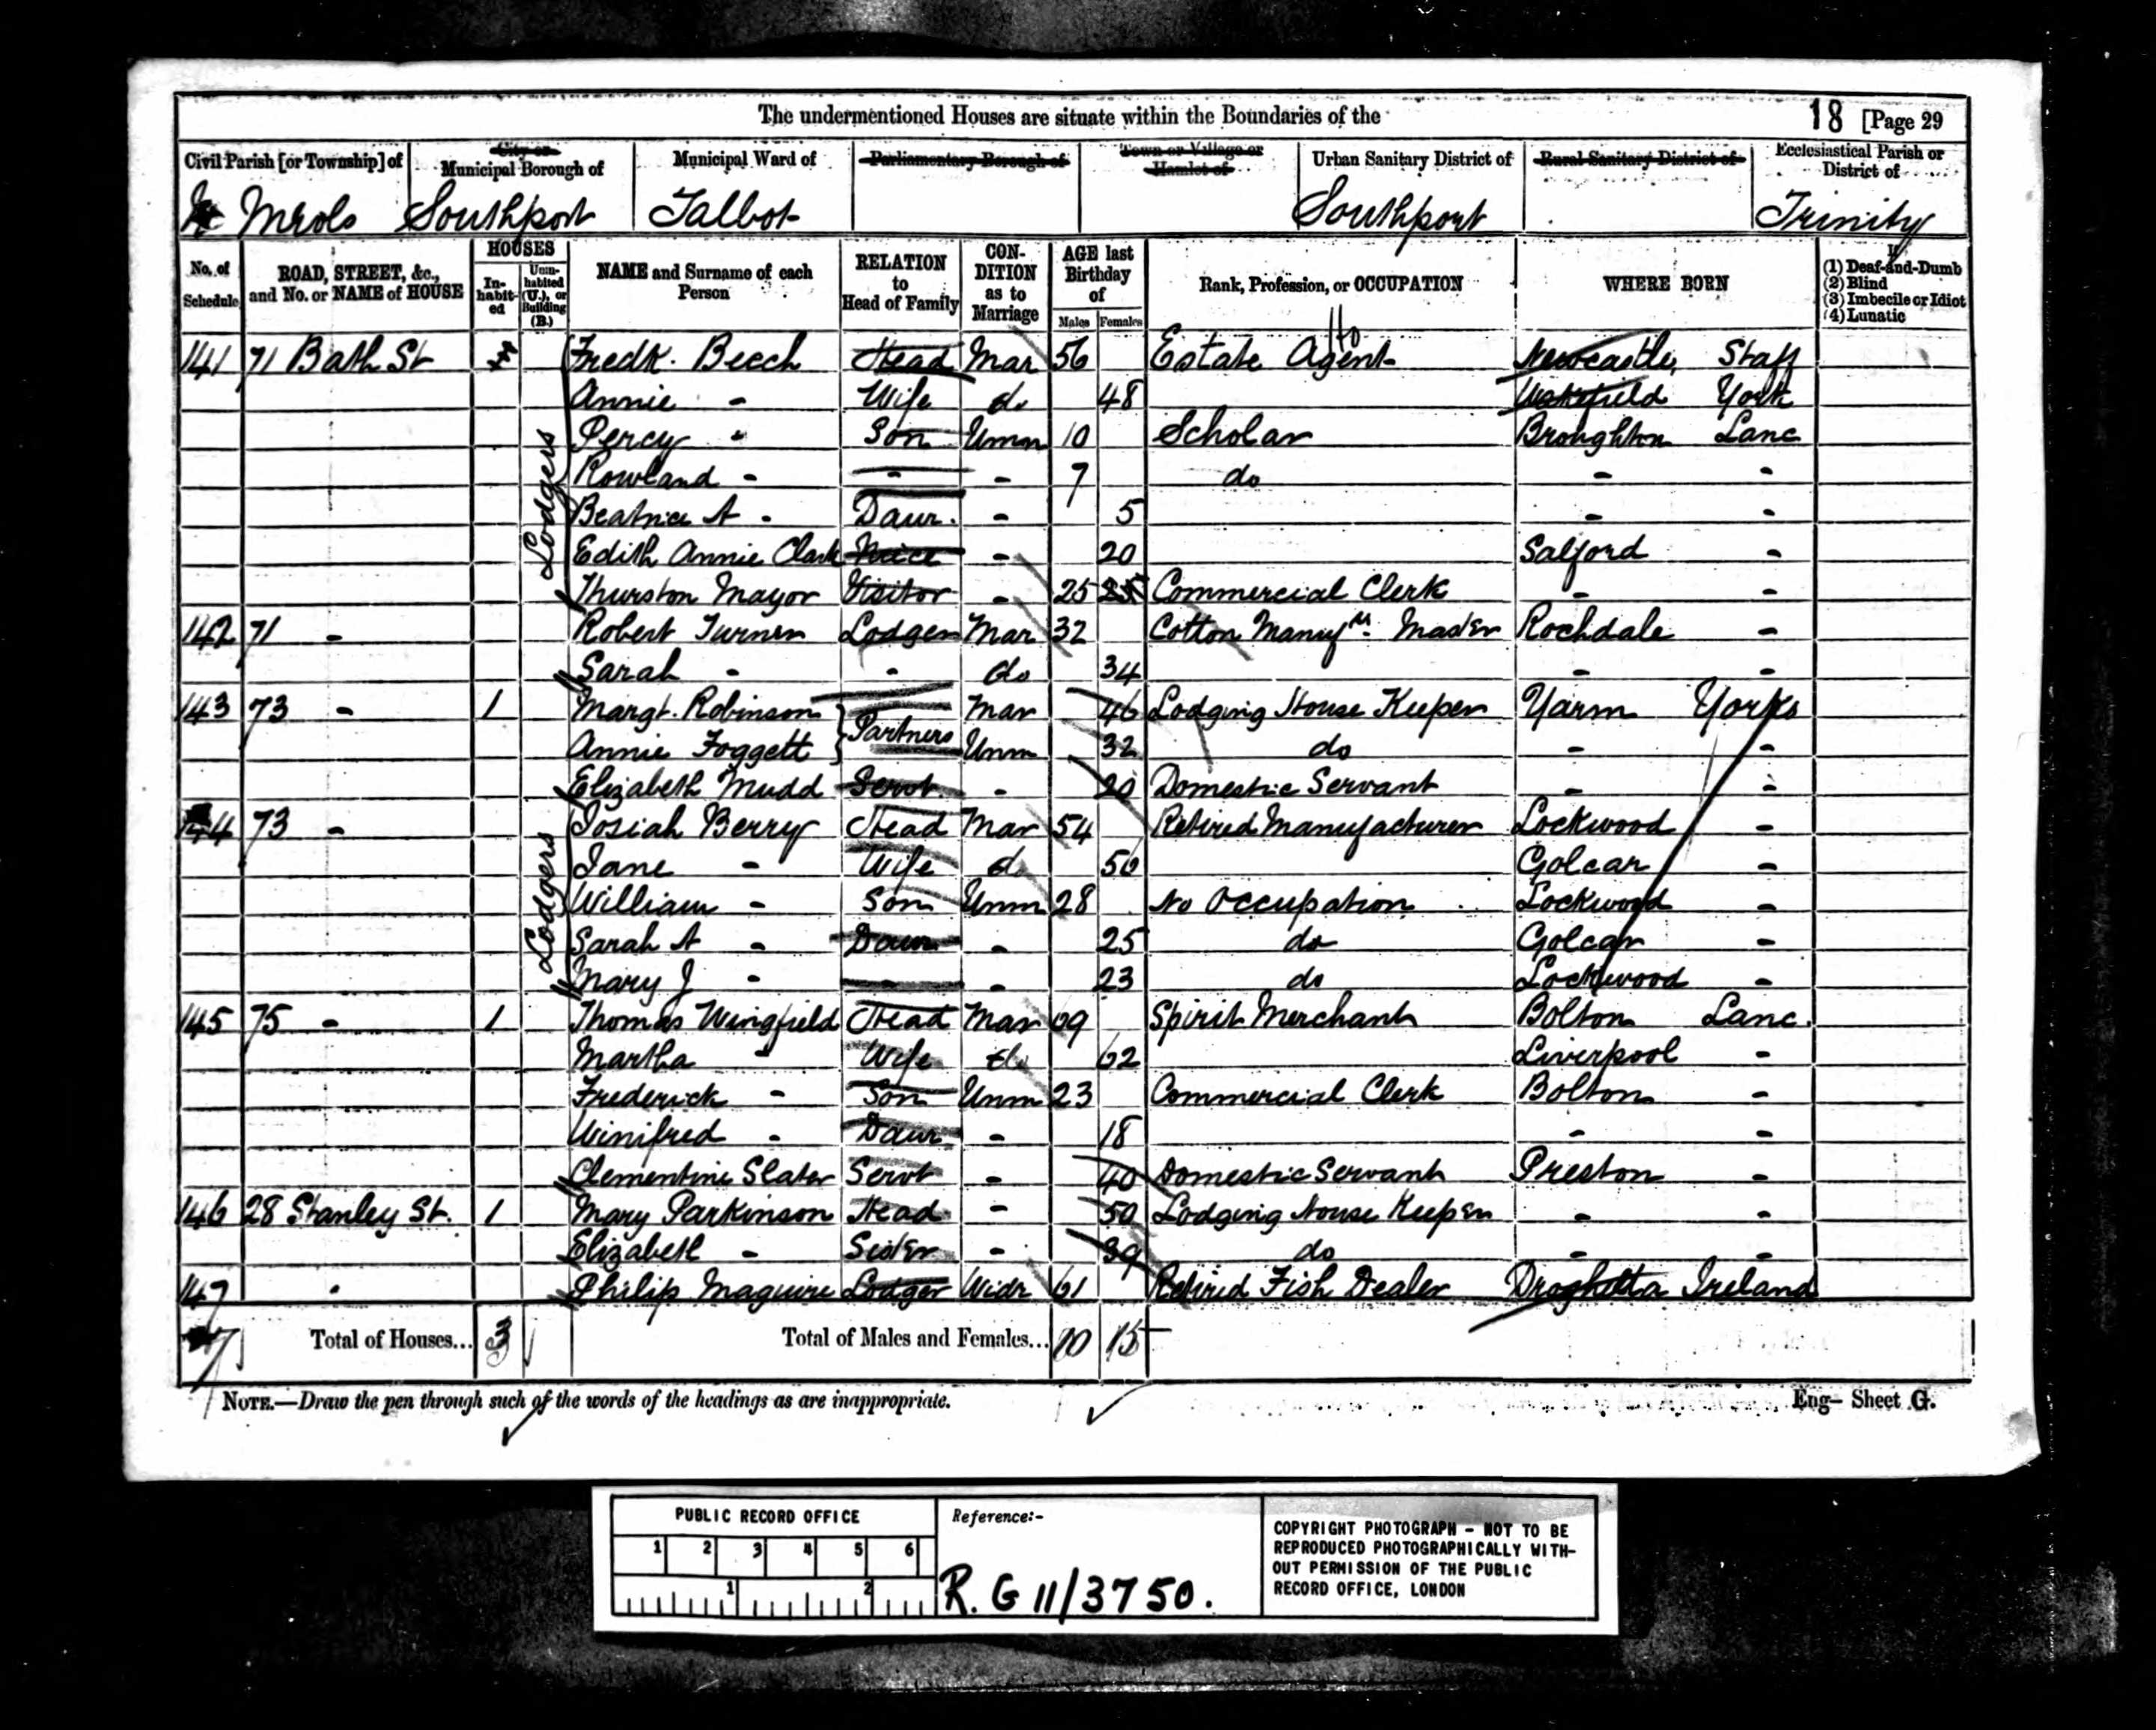 The undermentioned Houses are situate within the Boundaries of the
18 [Page 29
Civil Parish [or Township] of
City or Municipal Borough of
Municipal Ward of
Parliamentary Borough of
Town or Village or Hamlet of
Urban Sanitary District of
Rural Sanitary District of
Ecclesiastical Parish or District of
Mrols Southport Talbot Southport Trinity
No. of Schedule
ROAD, STREET, &c., and No. or NAME of HOUSE
HOUSES
Inhabited
Uninhabited (U.), or Building (B.)
NAME and Surname of each Person
RELATION to Head of Family
CONDITION as to Marriage
AGE last Birthday of
Males Females
Rank, Profession, or OCCUPATION
WHERE BORN
If
(1) Deaf-and-Dumb
(2) Blind
(3) Imbecile or Idiot
(4) Lunatic
141 71 Bath St Fredk. Beech Head Mar 56 Estate Agent Newcastle, Staff
Annie - Wife do 48 Wakefield York
Percy " Son Unm 10 Scholar Broughton Lanc
Rowland - - - 7 do - -
Beatrice A - Daur. - 5 - -
Edith Annie Clark Neice - 20 Salford -
Thurston Mayor Visitor - 25 Commercial Clerk - -
Lodgers
142 71 - Robert Turner Lodger Mar 32 Cotton Manufr. Master Rochdale -
Sarah - - do 34 - -
143 73 - 1 Margt. Robinson } Partners Mar 46 Lodging House Keeper Yarm Yorks
Annie Foggett } Unm 32 do - -
Elizabeth Mudd Servt. - 20 Domestic Servant - -
144 73 - Josiah Berry Head Mar 54 Retired Manufacturer Lockwood -
Jane - Wife do 50 Golcar -
William - Son Unm 28 No Occupation Lockwood -
Sarah A - Daur - 25 do Golcar -
Mary J - - - 23 do Lockwood -
Lodgers
145 75 - 1 Thomas Wingfield Head Mar 69 Spirit Merchant Bolton Lanc.
Martha - Wife do 62 Liverpool -
Frederick - Son Unm 23 Commercial Clerk Bolton -
Winifred - Daur - 18 - -
Clementine Slater Servt - 40 Domestic Servant Preston -
146 28 Stanley St. 1 Mary Parkinson Head - 50 Lodging House Keeper - -
Elizabeth - Sister - 39 do - -
147 " Philip Maguire Lodger Widr 61 Retired Fish Dealer Drogheda Ireland
Total of Houses... 3 Total of Males and Females... 10 15
NOTE.—Draw the pen through such of the words of the headings as are inappropriate.
Eng— Sheet G.
PUBLIC RECORD OFFICE
1 2 3 4 5 6
1 2
Reference:-
R.G 11/3750.
COPYRIGHT PHOTOGRAPH - NOT TO BE
REPRODUCED PHOTOGRAPHICALLY WITH-
OUT PERMISSION OF THE PUBLIC
RECORD OFFICE, LONDON